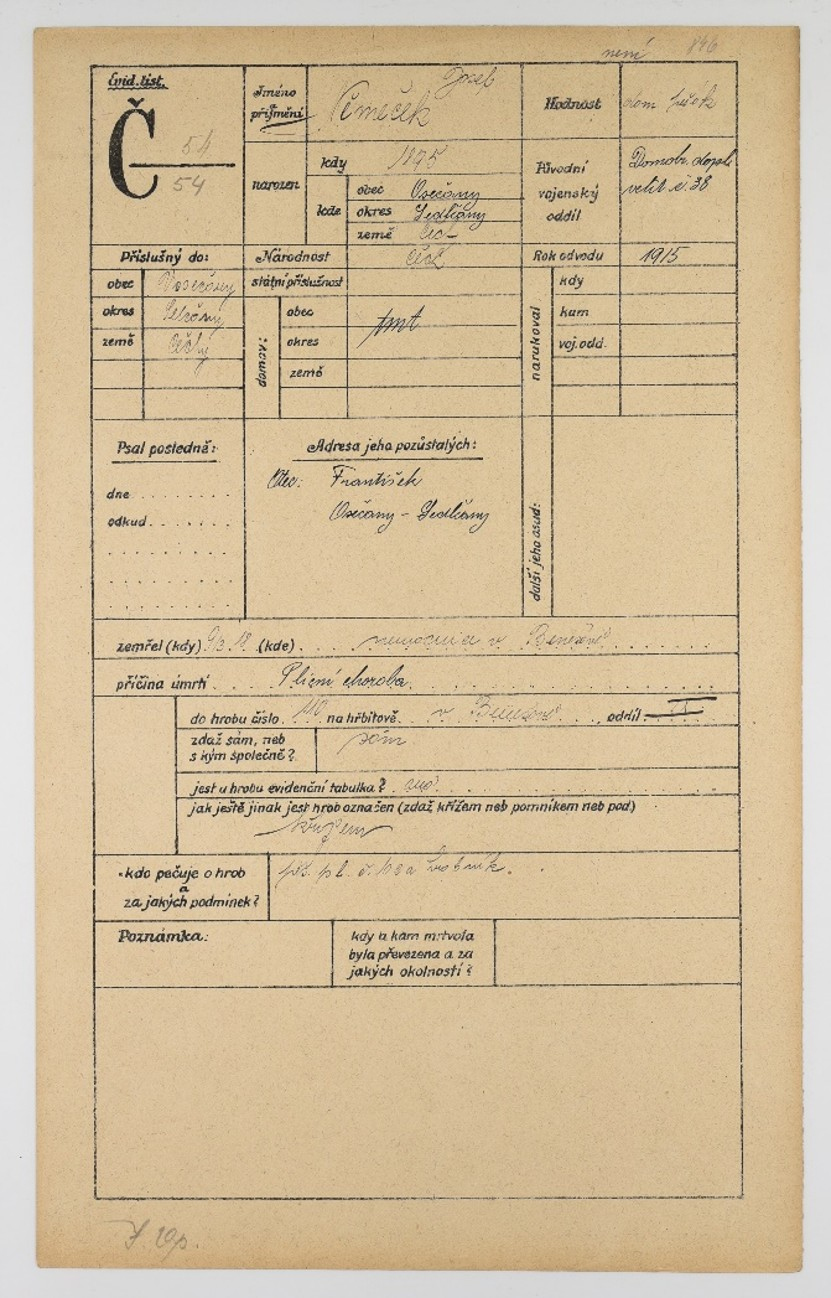 není 846
Evid. list.
Č 54
54
Jméno
příjmení
Josef
Němeček
Hodnost
dom pěšák
narozen
kdy 1895
kde
obec Osečany
okres Sedlčany
země Čech
Původní
vojenský
oddíl
Domobr. dopl.
velit č. 38
Příslušný do:
obec Vosečany
okres Selčany
země Čechy
Národnost
Čech
státní příslušnost
domov:
obec
okres
země
Rok odvodu 1915
narukoval
kdy
kam
voj. odd.
Psal posledně:
dne . . . . . . .
odkud . . . . . .
Adresa jeho pozůstalých:
Otec: František
Osečany - Sedlčany
další jeho osud:
zemřel (kdy) 9/2 18 (kde) . . . nemocnice v Benešově
příčina úmrtí . . . Plicní choroba
do hrobu číslo 110 na hřbitově . . v Benešově . . . oddíl
zdaž sám, neb
s kým společně?
sám
jest u hrobu evidenční tabulka? . ano
jak ještě jinak jest hrob označen (zdaž křížem neb pomníkem neb pod.)
křížem
kdo pečuje o hrob
a
za jakých podmínek?
Poznámka:
kdy a kam mrtvola
byla převezena a za
jakých okolností?